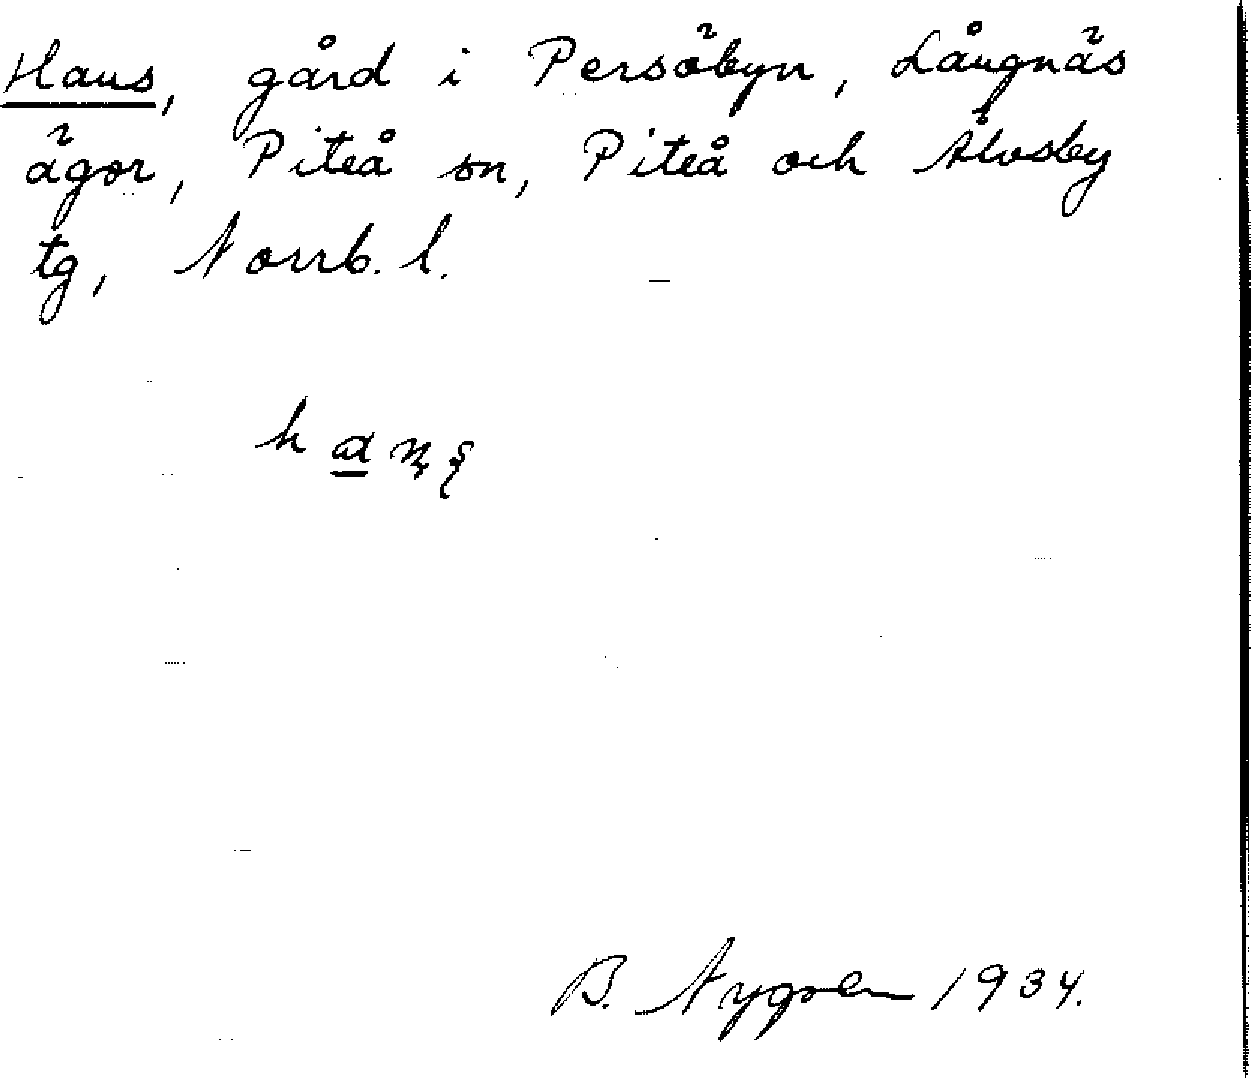 Hans, gård i Persöbyn, Långnäs
ägor, Piteå sn, Piteå och Älvsby
tg, Norrb. l.
B. Nygren 1934.